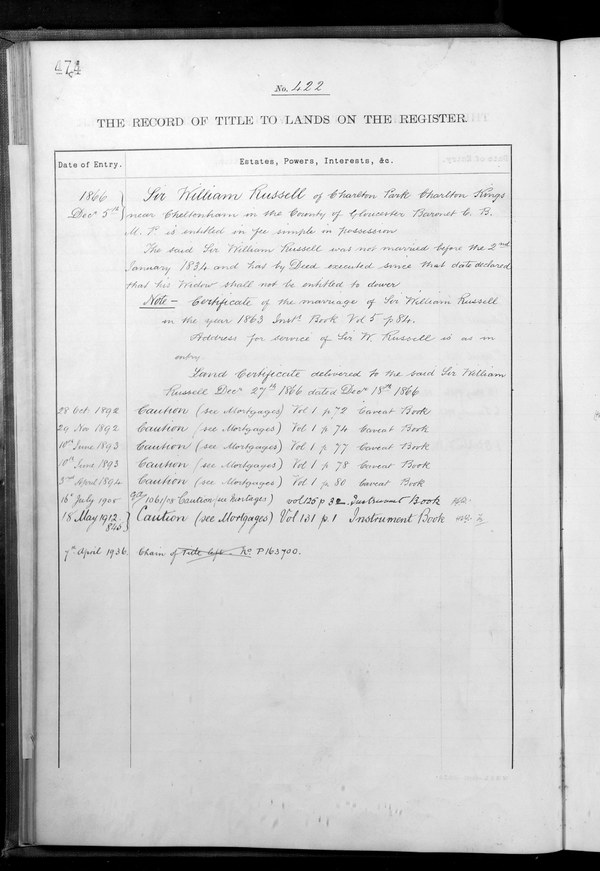 474
No. 422
THE RECORD OF TITLE TO LANDS ON THE REGISTER.
Date of Entry. Estates, Powers, Interests, &c.
1866 Sir William Russell of Charlton Park Charlton Kings
Decr 5th near Cheltenham in the County of Gloucester Baronet C. B.
M. P. is entitled in fee simple in possession
The said Sir William Russell was not married before the 2nd
January 1834 and has by Deed executed since that date declared
that his Widow shall not be entitled to dower
Note – Certificate of the marriage of Sir William Russell
in the year 1863 Instt Book Vol 5 p 84.
Address for service of Sir W. Russell is as in
entry.
Land Certificate delivered to the said Sir William
Russell Decr 27th 1866 dated Decr 18th 1866
28 Oct 1892 Caution (see Mortgages) Vol 1 p. 72 Caveat Book
29 Nov 1892 Caution (see Mortgages) Vol 1 p. 74 Caveat Book
10th June 1893 Caution (see Mortgages) Vol 1 p. 77 Caveat Book
10th June 1893 Caution (see Mortgages) Vol 1 p 78 Caveat Book
3rd April 1894 Caution (see Mortgages) Vol 1 p. 80 Caveat Book
16th July 1900 1061/08 Caution (see Mortgages) vol 125 p 32. Instrument Book
18 May 1912 Caution (see Mortgages) Vol 131 p. 1 Instrument Book
845
7th April 1936. Chain of Title Ceft. No P163700.